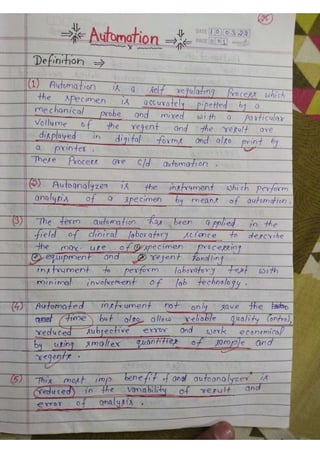 Automation
DATE 10 03 24
PAGE 001
Definition ⇒
(1) Automation is a self regulating Process which
the specimen is accurately pipetted by a
mechanical probe and mixed with a particular
volume of the regent and the result are
displayed in digital forms and also print by
a printer.
These Process are c/d automation.
(2) Autoanalyzer is the instrument which perform
analysis of a specimen by means of automation.
(3) The term automation has been applied in the
field of clinical laboratory science to describe
the max. use of ① specimen processing
② equipment and ③ regent handling
instrument to perform laboratory test with
minimal involvement of lab technology.
(4) Automated instrument not only save the
time but also allow reliable quality control,
reduced subjective error and work economical
by using smaller quantities of sample and
regents.
(5) This most imp benefit of and autoanalyzer is
reduced in the variability of result and
error of analysis.